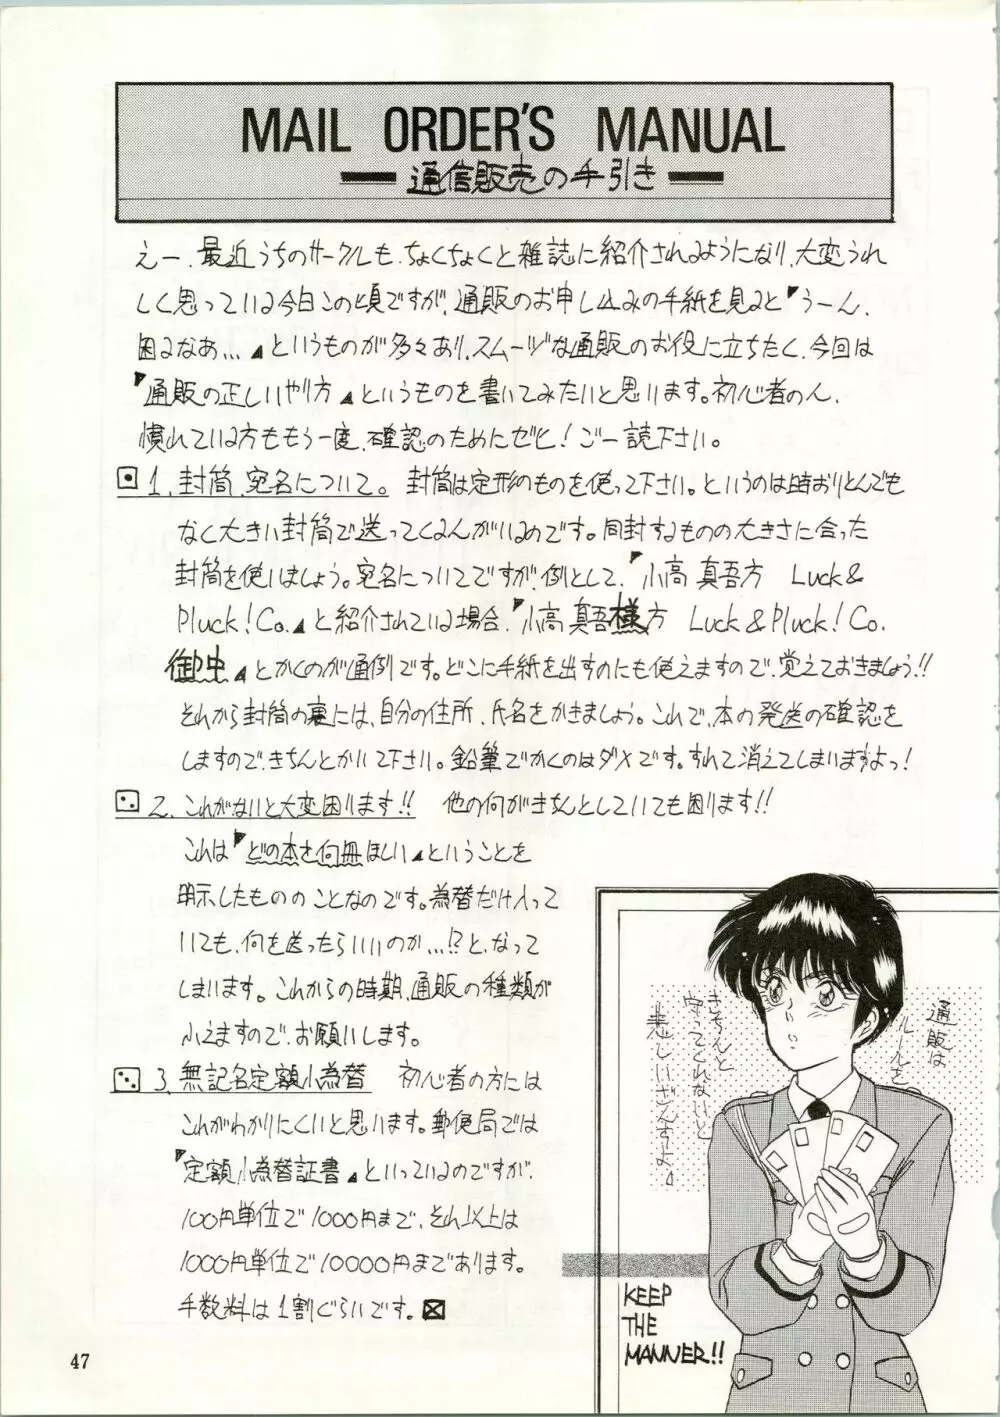 MAIL ORDER'S MANUAL
通信販売の手引き
えー、最近うちのサークルも、ちょくちょくと雑誌に紹介されるようになり、大変うれ
しく思っている今日この頃ですが、通販のお申し込みの手紙を見ると『うーん、
困るなあ…』というものが多々あり、スムーズな通販のお役に立ちたく、今回は
『通販の正しいやり方』というものを書いてみたいと思います。初心者のん、
慣れている方ももう一度、確認のためにゼヒ！ご一読下さい。
⚀1.封筒、宛名について。 封筒は定形のものを使って下さい。というのは時おりとんでも
なく大きい封筒で送ってくる人がいるのです。同封するものの大きさに合った
封筒を使いましょう。宛名についてですが、例として、『小高真吾方 Luck&
Pluck!Co.』と紹介されている場合、『小高真吾様方 Luck&Pluck!Co.
御中』とかくのが通例です。どこに手紙を出すのにも使えますので、覚えておきましょう!!
それから封筒の裏には、自分の住所、氏名をかきましょう。これで、本の発送の確認を
しますので、きちんとかいて下さい。鉛筆でかくのはダメです。すれて消えてしまいますよっ!
⚁2.これがないと大変困ります!! 他の何がきちんとしていても困ります!!
これは『どの本を何冊ほしい』ということを
明示したもののことなのです。為替だけ入って
いても、何を送ったらいいのか…!?と、なって
しまいます。これからの時期、通販の種類が
ふえますので、お願いします。
⚂3.無記名定額小為替 初心者の方には
これがわかりにくいと思います。郵便局では
『定額小為替証書』といっているのですが、
100円単位で1000円まで、それ以上は
1000円単位で10000円まであります。
手数料は1割ぐらいです。
通販は
ルールを
きちんと
守ってくれないと
悲しいざんすよ。
KEEP
THE
MANNER!!
47